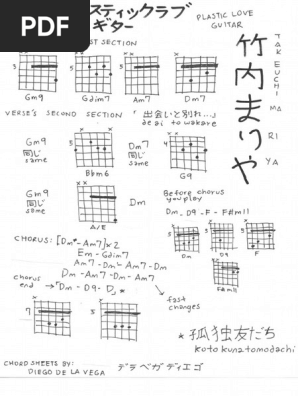 PDF
スティックラブ
ギター
PLASTIC LOVE
GUITAR
竹内まりや
TAKEUCHI
MA
RI
YA
ST SECTION
Gm9 Gdim7 Am7 Dm7
VERSE'S SECOND SECTION 「出会いと別れ...」
deai to wakare
Gm9
同じ
same
Bbm6
Dm7
同じ
same
G9
Gm9
同じ
same
A/E
Dm
Before chorus
you play
Dm, D9 - F - F#m11
Dm D9 F
F#m11
CHORUS: [Dm7-Am7]×2
Em - Gdim7
Am7 - Dm - Am7 - Dm
Dm - Am7 - Am7 - Dm
chorus
end → "Dm - D9 - D" *
fast
changes
* 孤独友だち
kotokunatomodachi
CHORD SHEETS BY:
DIEGO DE LA VEGA
デラベガディエゴ